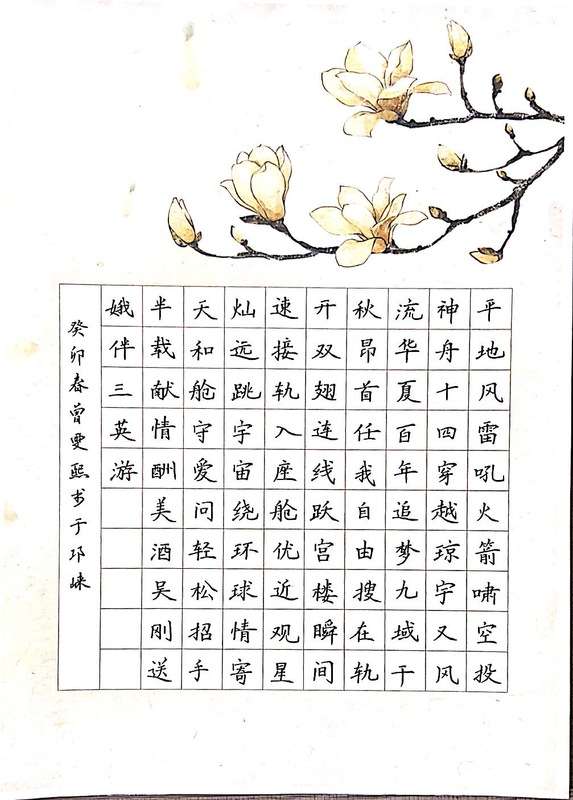 平地风雷吼火箭啸空投
神舟十四穿越琼宇又风
流华夏百年追梦九域千
秋昂首任我自由搜在轨
开双翅连线跃宫楼瞬间
速接轨入座舱优近观星
灿远跳宇宙绕环球情寄
天和舱守爱问轻松招手
半载献情酬美酒吴刚送
娥伴三英游
癸卯春曾雯熙书于邛崃